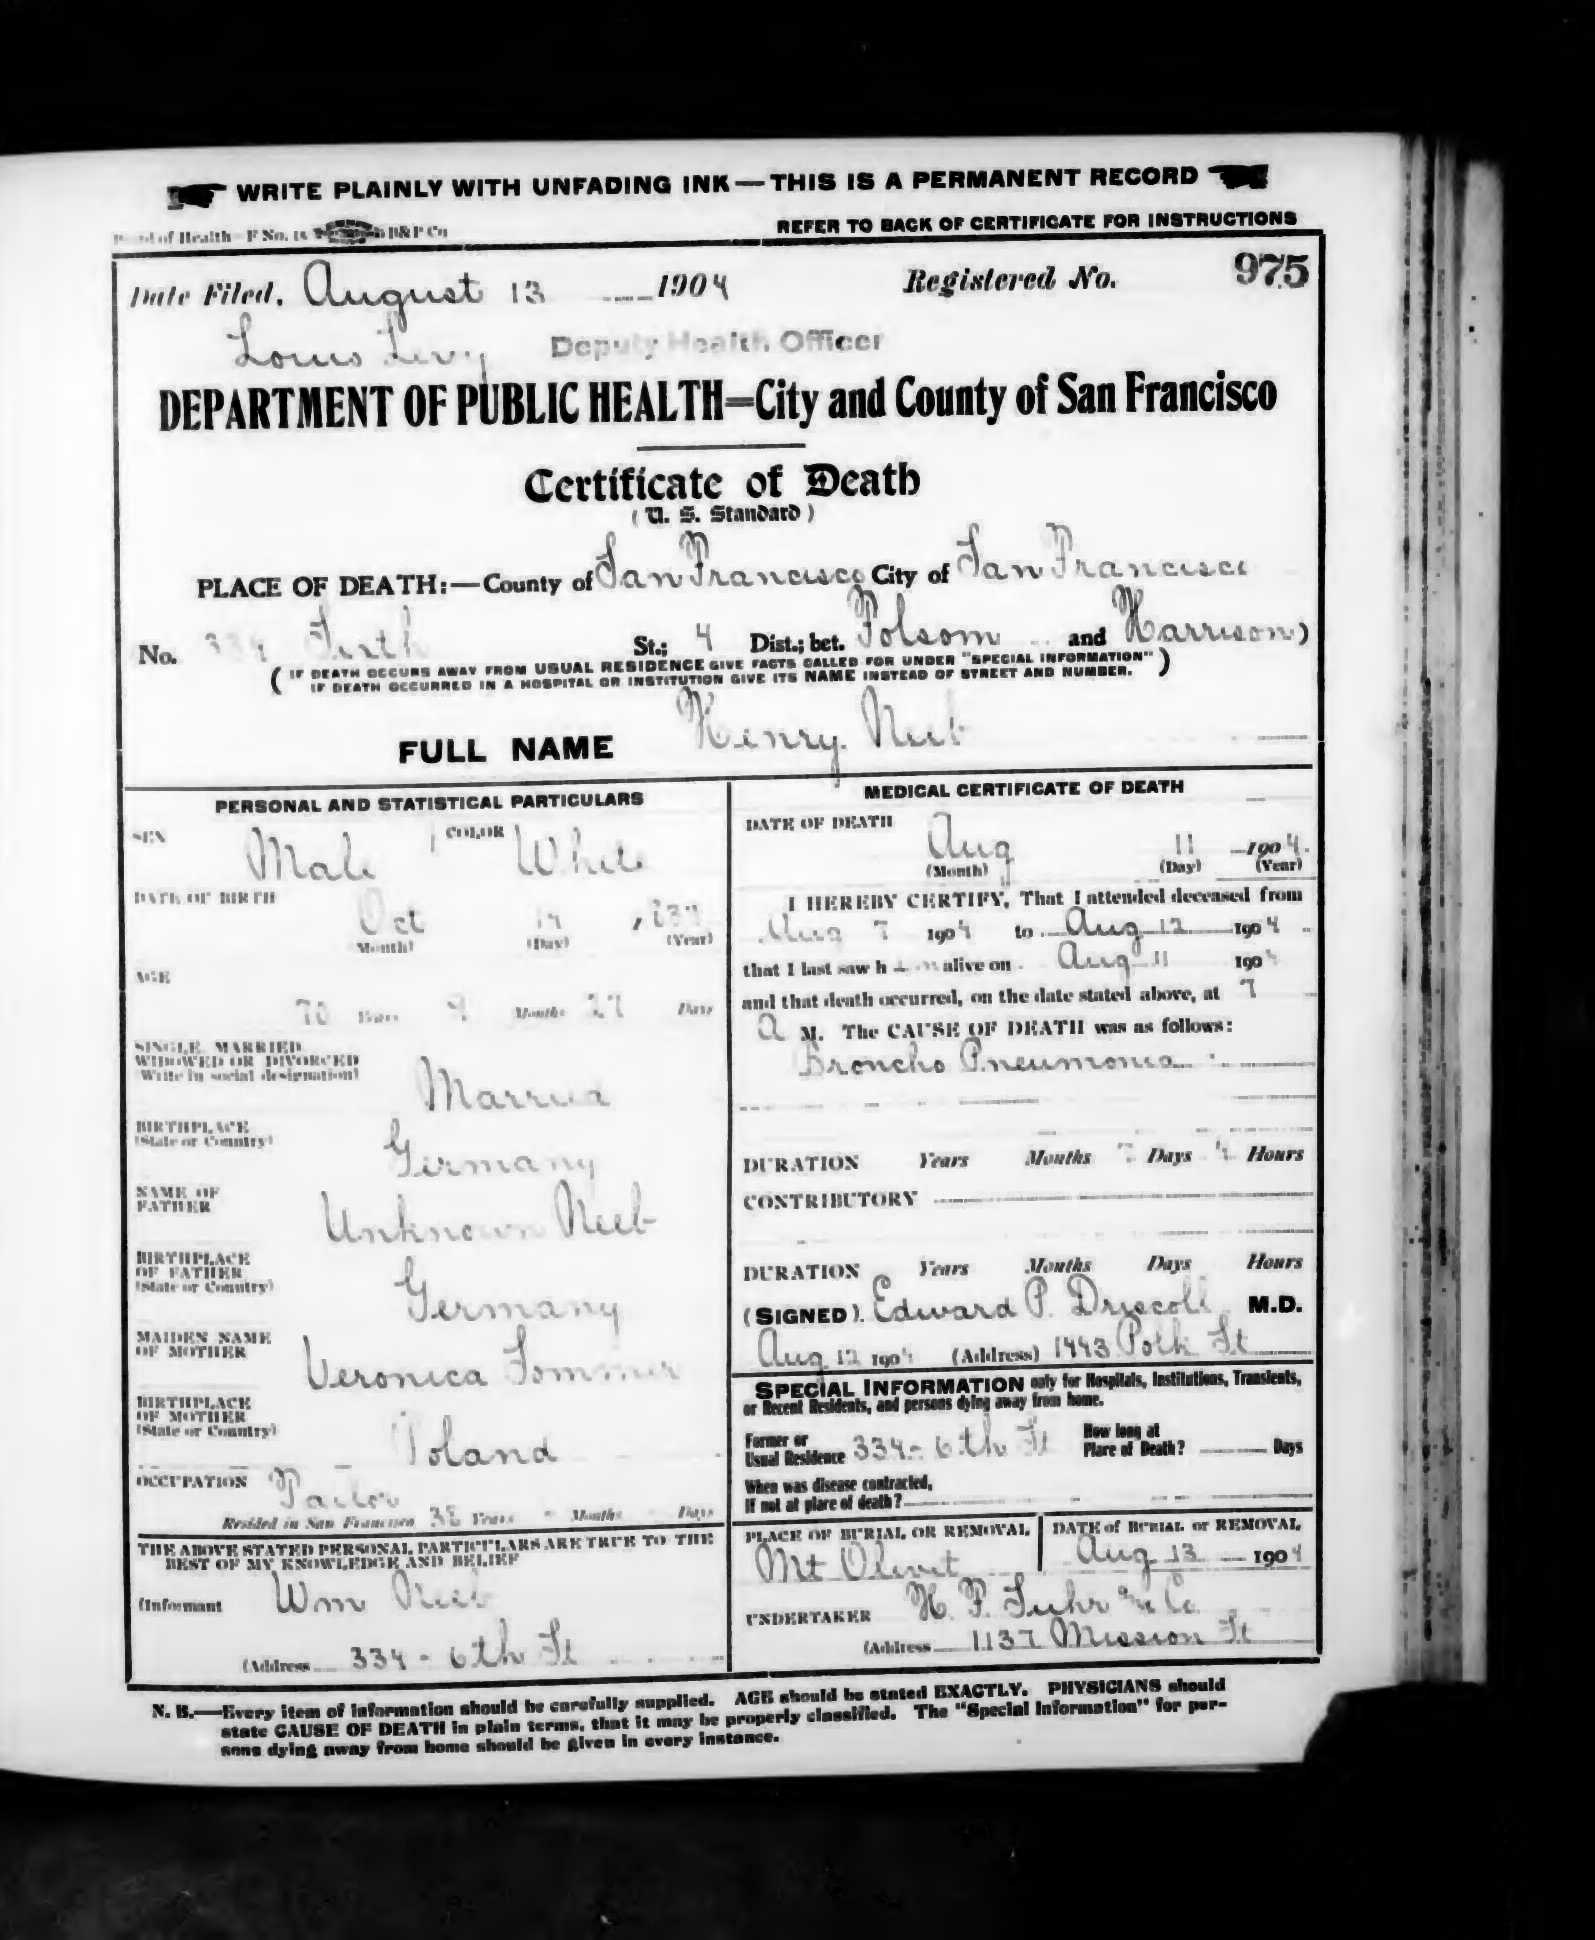 WRITE PLAINLY WITH UNFADING INK — THIS IS A PERMANENT RECORD
Board of Health—F No. 15 B&P Co
REFER TO BACK OF CERTIFICATE FOR INSTRUCTIONS
Date Filed, August 13 1904 Registered No. 975
Louis Levy Deputy Health Officer
DEPARTMENT OF PUBLIC HEALTH=City and County of San Francisco
Certificate of Death
(U. S. Standard)
PLACE OF DEATH:—County of San Francisco City of San Francisco
No. 334 Sixth St.; 4 Dist.; bet. Folsom and Harrison)
(IF DEATH OCCURS AWAY FROM USUAL RESIDENCE GIVE FACTS CALLED FOR UNDER "SPECIAL INFORMATION"
IF DEATH OCCURRED IN A HOSPITAL OR INSTITUTION GIVE ITS NAME INSTEAD OF STREET AND NUMBER.)
FULL NAME Henry Neeb
PERSONAL AND STATISTICAL PARTICULARS
SEX Male COLOR White
DATE OF BIRTH
Oct
(Month) (Day) (Year)
AGE
Years 9 Months 27 Days
SINGLE, MARRIED,
WIDOWED OR DIVORCED
(Write in social designation)
Married
BIRTHPLACE
(State or Country)
Germany
NAME OF
FATHER
Unknown Neeb
BIRTHPLACE
OF FATHER
(State or Country)
Germany
MAIDEN NAME
OF MOTHER
Veronica Sommer
BIRTHPLACE
OF MOTHER
(State or Country)
Poland
OCCUPATION Tailor
Resided in San Francisco Years - Months - Days
THE ABOVE STATED PERSONAL PARTICULARS ARE TRUE TO THE
BEST OF MY KNOWLEDGE AND BELIEF
(Informant Wm Neeb
(Address 334 - 6th St
MEDICAL CERTIFICATE OF DEATH
DATE OF DEATH
Aug 11 1904.
(Month) (Day) (Year)
I HEREBY CERTIFY, That I attended deceased from
Aug 7 1904 to Aug 12 1904
that I last saw h im alive on Aug 11 1904
and that death occurred, on the date stated above, at 7
A M. The CAUSE OF DEATH was as follows:
Broncho Pneumonia
DURATION Years Months Days Hours
CONTRIBUTORY
DURATION Years Months Days Hours
(SIGNED). Edward P. Driscoll M.D.
Aug 12 1904 (Address) 1443 Polk St
SPECIAL INFORMATION only for Hospitals, Institutions, Transients,
or Recent Residents, and persons dying away from home.
Former or
Usual Residence 334 - 6th St
How long at
Place of Death? Days
When was disease contracted,
If not at place of death?
PLACE OF BURIAL OR REMOVAL
Mt Olivet
DATE of BURIAL or REMOVAL
Aug 13 1904
UNDERTAKER H. F. Suhr & Co
(Address 1137 Mission St
N. B.—Every item of information should be carefully supplied. AGE should be stated EXACTLY. PHYSICIANS should
state CAUSE OF DEATH in plain terms, that it may be properly classified. The "Special Information" for per-
sons dying away from home should be given in every instance.